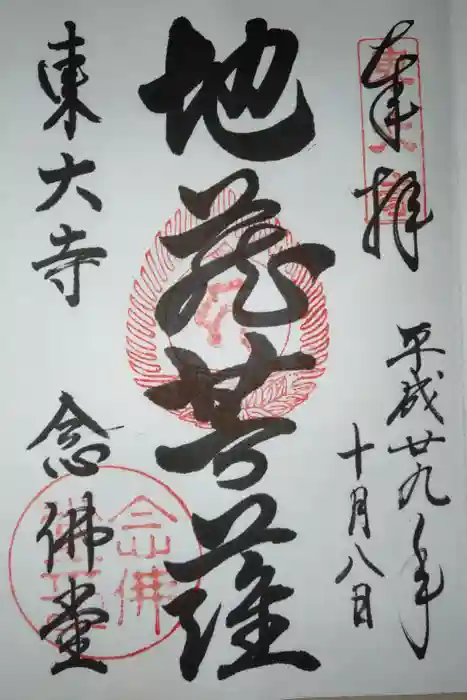 奉拝
平成廿九年
十月八日
地蔵菩薩
東大寺
念佛堂
念佛